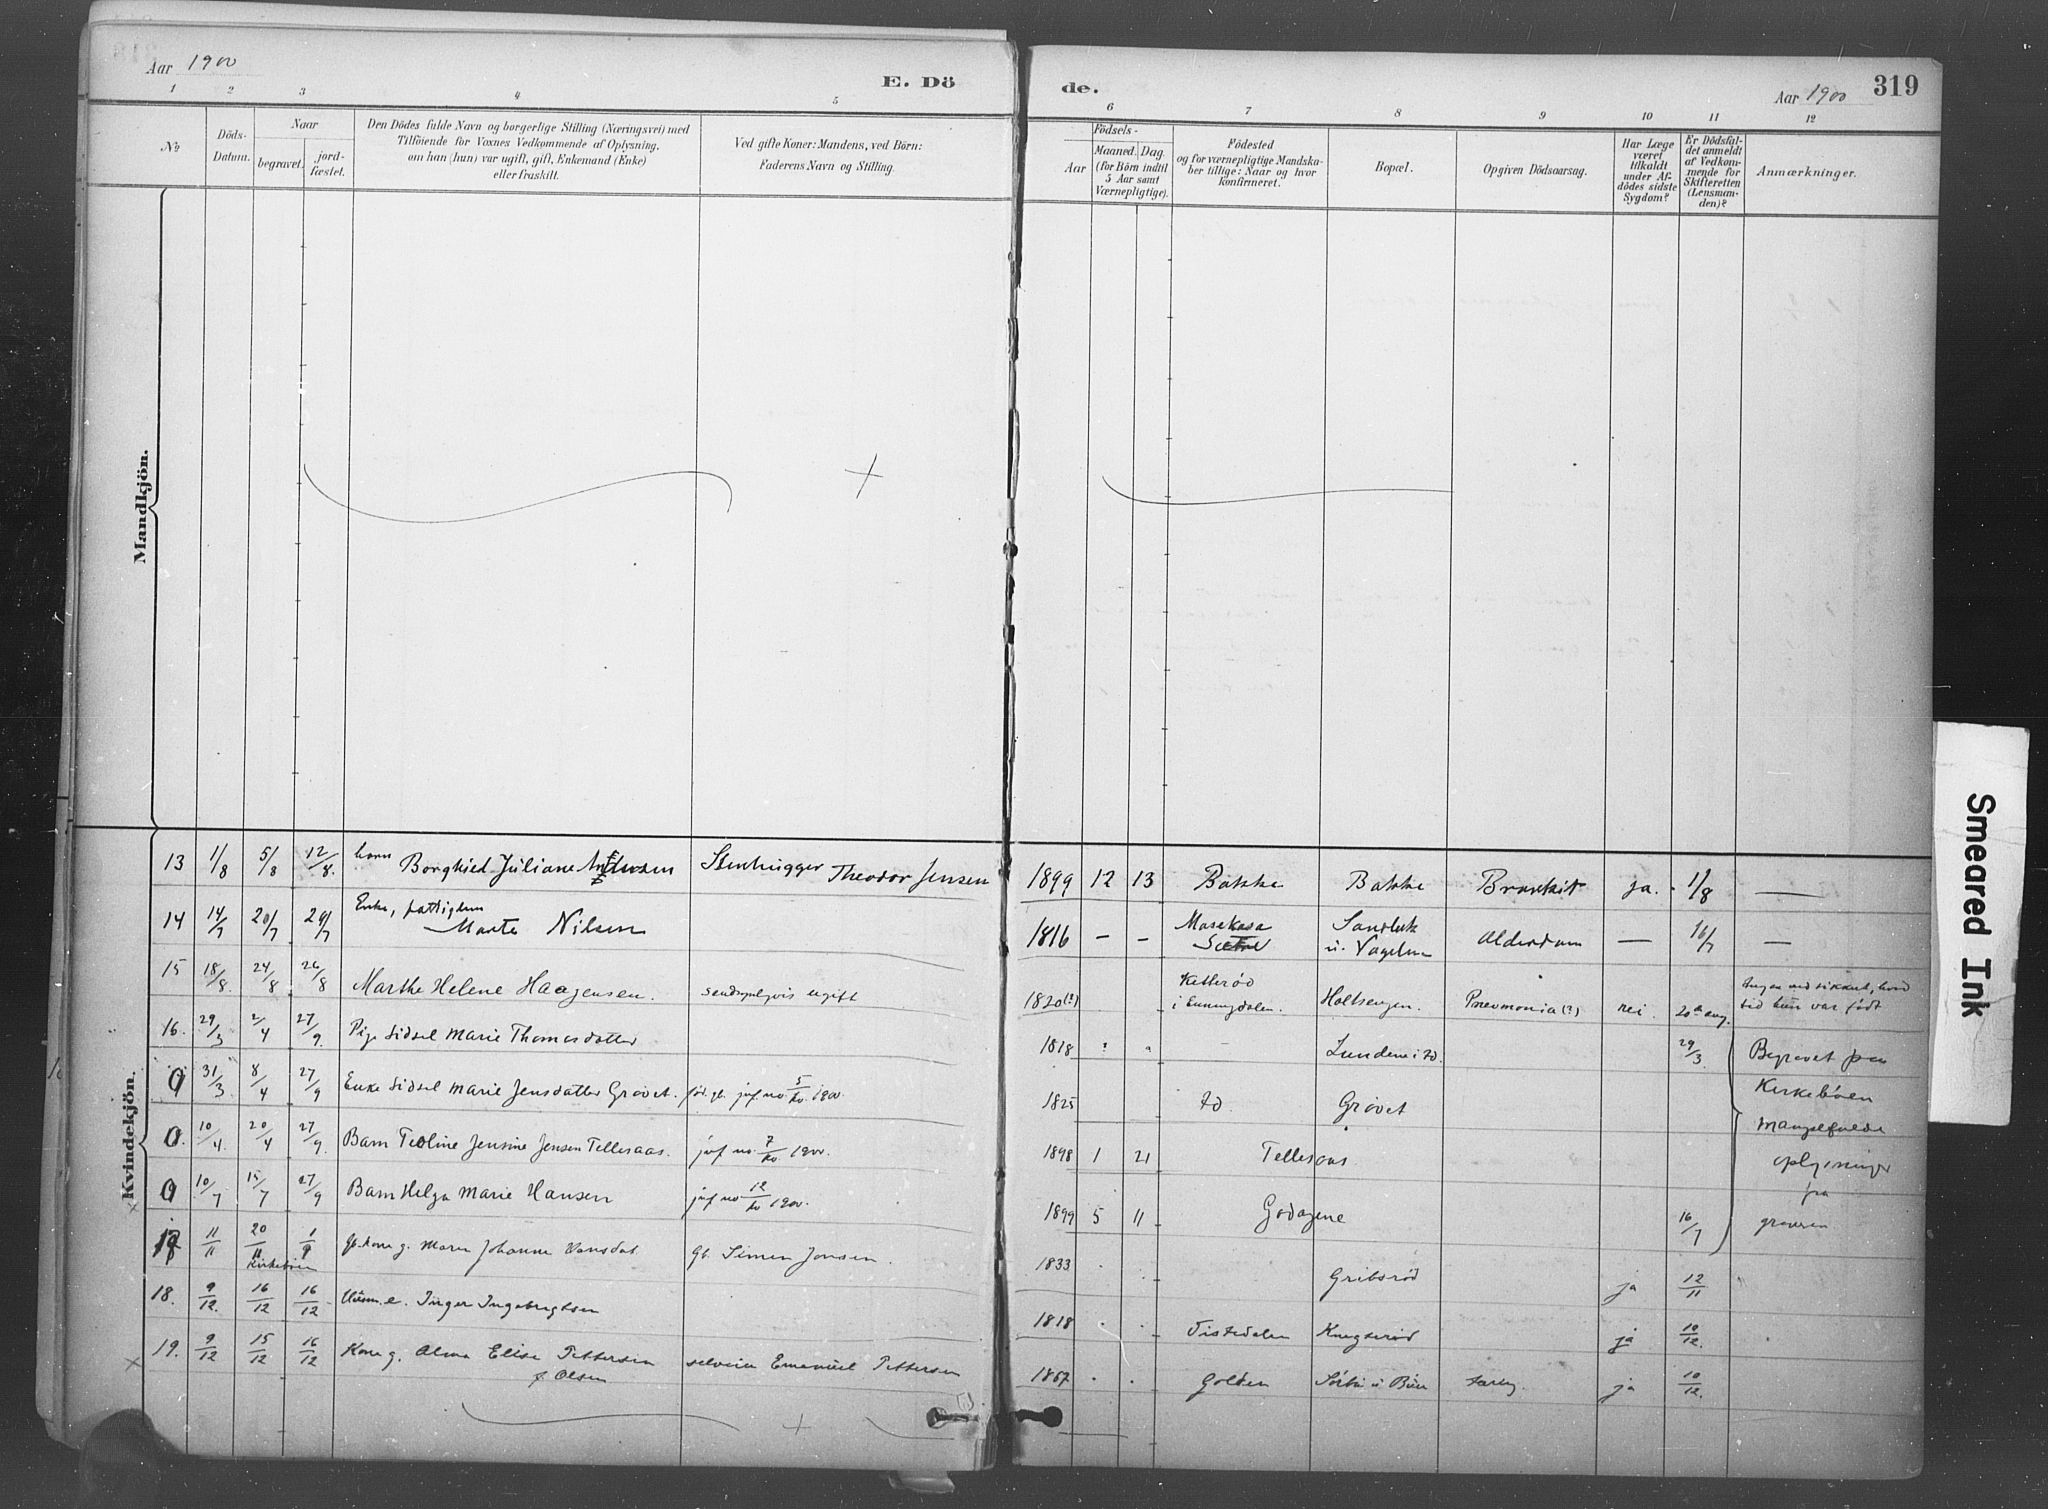 Aar 1900
E. Dö
de.
Aar 1900
319
1 2 3 4 5 6 7 8 9 10 11 12
№
Döds-
Datum.
Naar
begravet.
jord-
fæstet.
Den Dödes fulde Navn og borgerlige Stilling (Næringsvei) med
Tilföiende for Voxnes Vedkommende af Oplysning,
om han (hun) var ugift, gift, Enkemand (Enke)
eller fraskilt.
Ved gifte Koner: Mandens, ved Börn:
Faderens Navn og Stilling.
Födsels-
Aar
Maaned. Dag.
(for Börn indtil
5 Aar samt
Værnepligtige).
Födested
og for værnepligtige Mandska-
ber tillige: Naar og hvor
konfirmeret.
Bopæl.
Opgiven Dödsaarsag.
Har Læge
været
tilkaldt
under Af-
dödes sidste
Sygdom?
Er Dödsfal-
det anmeldt
af Vedkom-
mende for
Skifteretten
(Lensman-
den)?
Anmærkninger.
Mandkjön.
Kvindekjön.
13 1/8 5/8 12/8. barn Borghild Juliane Stenhugger Theodor Jensen 1899 12 13 Bakke Bakke ja. 1/8 —
14 14/7 20/7 29/7 Enke, fattiglem Marte Nilsen 1816 — — Alderdom — 16/7 —
15 18/8. 24/8 26/8 Marthe Helene Haagensen. ugift 1820(?) i Enningdalen. Holtsengen. Pneumonia(?) nei 20de aug. var født
16. 29/3 2/4 27/9. Pige Sidsel Marie Thomasdatter 1818 29/3 Begravet paa
31/3 8/4 27/9 Enke Sidsel Marie Jensdatter Grøvet. jvf. no. 5/kv. 1900. 1825 Id. Grøvet Kirkebøen
10/4. 20/4 27/9. Barn Teoline Jensine Jensen Tellesaas. jvf. no. 7/kv. 1900. 1898 1 21 Tellesaas Mangelfulde
10/7 15/7 27/9 Barn Helga Marie Hansen jvf. no 12/kv 1900. 1899 5 11 16/7 oplysninger
fra
graveren
17 11/11 20/11 1/9 Gb. kone g. Maren Johanne Hansdat. Gb. Simen Jonsen. 1833 Gribsrød ja 12/11
18. 9/12. 16/12 16/12 Inger Ingebrigtsen 1818 Tistedalen ja 10/12.
19. 9/12 15/12 16/12 Kone g. Alma Elise Pettersen selveier Emanuel Pettersen 1867 ja 10/12.
f. Olsen
Smeared Ink